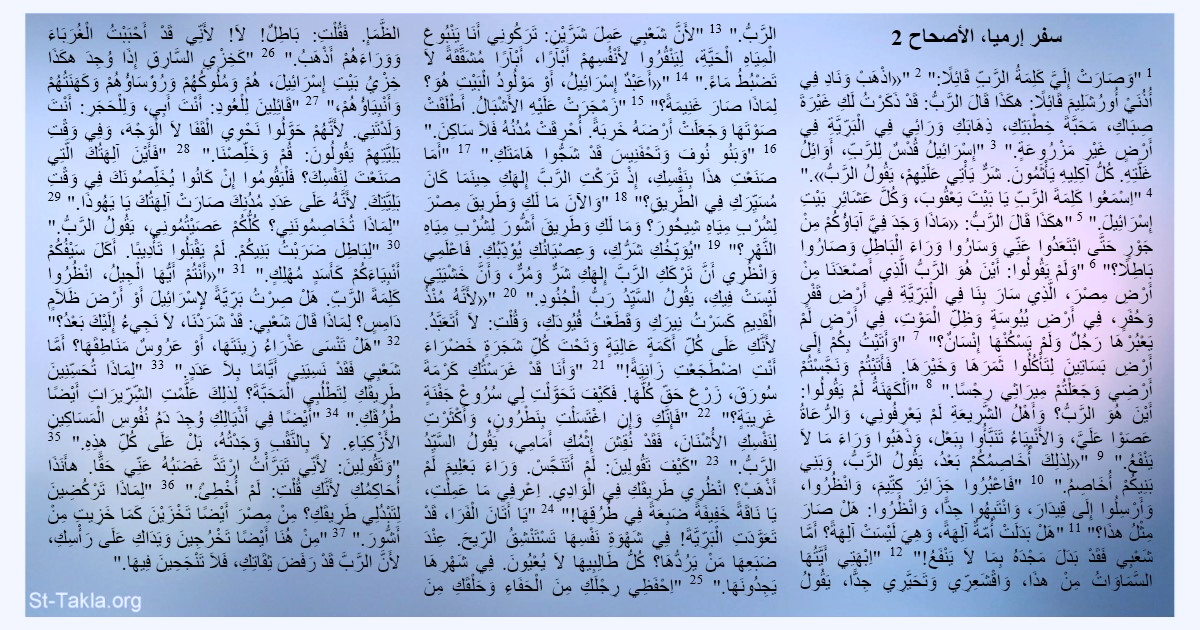 سفر إرميا، الأصحاح 2
1 "وَصَارَتْ إِلَيَّ كَلِمَةُ الرَّبِّ قَائِلًا:" 2 "«اذْهَبْ وَنَادِ فِي
أُذُنَيْ أُورُشَلِيمَ قَائِلًا: هكَذَا قَالَ الرَّبُّ: قَدْ ذَكَرْتُ لَكِ غَيْرَةَ
صِبَاكِ، مَحَبَّةَ خِطْبَتِكِ، ذِهَابَكِ وَرَائِي فِي الْبَرِّيَّةِ فِي
أَرْضٍ غَيْرِ مَزْرُوعَةٍ." 3 "إِسْرَائِيلُ قُدْسٌ لِلرَّبِّ، أَوَائِلُ
غَلَّتِهِ. كُلُّ آكِلِيهِ يَأْثَمُونَ. شَرٌّ يَأْتِي عَلَيْهِمْ، يَقُولُ الرَّبُّ»."
4 "اِسْمَعُوا كَلِمَةَ الرَّبِّ يَا بَيْتَ يَعْقُوبَ، وَكُلَّ عَشَائِرِ بَيْتِ
إِسْرَائِيلَ." 5 "هكَذَا قَالَ الرَّبُّ: «مَاذَا وَجَدَ فِيَّ آبَاؤُكُمْ مِنْ
جَوْرٍ حَتَّى ابْتَعَدُوا عَنِّي وَسَارُوا وَرَاءَ الْبَاطِلِ وَصَارُوا
بَاطِلًا؟" 6 "وَلَمْ يَقُولُوا: أَيْنَ هُوَ الرَّبُّ الَّذِي أَصْعَدَنَا مِنْ
أَرْضِ مِصْرَ، الَّذِي سَارَ بِنَا فِي الْبَرِّيَّةِ فِي أَرْضِ قَفْرٍ
وَحُفَرٍ، فِي أَرْضِ يُبُوسَةٍ وَظِلِّ الْمَوْتِ، فِي أَرْضٍ لَمْ
يَعْبُرْهَا رَجُلٌ وَلَمْ يَسْكُنْهَا إِنْسَانٌ؟" 7 "وَأَتَيْتُ بِكُمْ إِلَى
أَرْضِ بَسَاتِينَ لِتَأْكُلُوا ثَمَرَهَا وَخَيْرَهَا. فَأَتَيْتُمْ وَنَجَّسْتُمْ
أَرْضِي وَجَعَلْتُمْ مِيرَاثِي رِجْسًا." 8 "اَلْكَهَنَةُ لَمْ يَقُولُوا:
أَيْنَ هُوَ الرَّبُّ؟ وَأَهْلُ الشَّرِيعَةِ لَمْ يَعْرِفُونِي، وَالرُّعَاةُ
عَصَوْا عَلَيَّ، وَالأَنْبِيَاءُ تَنَبَّأُوا بِبَعْل، وَذَهَبُوا وَرَاءَ مَا لاَ
يَنْفَعُ." 9 "«لِذلِكَ أُخَاصِمُكُمْ بَعْدُ، يَقُولُ الرَّبُّ، وَبَنِي
بَنِيكُمْ أُخَاصِمُ." 10 "فَاعْبُرُوا جَزَائِرَ كِتِّيمَ، وَانْظُرُوا،
وَأَرْسِلُوا إِلَى قِيدَارَ، وَانْتَبِهُوا جِدًّا، وَانْظُرُوا: هَلْ صَارَ
مِثْلُ هذَا؟" 11 "هَلْ بَدَلَتْ أُمَّةٌ آلِهَةً، وَهِيَ لَيْسَتْ آلِهَةً؟ أَمَّا
شَعْبِي فَقَدْ بَدَلَ مَجْدَهُ بِمَا لاَ يَنْفَعُ!" 12 "اِبْهَتِي أَيَّتُهَا
السَّمَاوَاتُ مِنْ هذَا، وَاقْشَعِرِّي وَتَحَيَّرِي جِدًّا، يَقُولُ
الرَّبُّ." 13 "لأَنَّ شَعْبِي عَمِلَ شَرَّيْنِ: تَرَكُونِي أَنَا يَنْبُوعَ
الْمِيَاهِ الْحَيَّةِ، لِيَنْقُرُوا لأَنْفُسِهِمْ أَبْآرًا، أَبْآرًا مُشَقَّقَةً لاَ
تَضْبُطُ مَاءً." 14 "«أَعَبْدٌ إِسْرَائِيلُ، أَوْ مَوْلُودُ الْبَيْتِ هُوَ؟
لِمَاذَا صَارَ غَنِيمَةً؟" 15 "زَمْجَرَتْ عَلَيْهِ الأَشْبَالُ. أَطْلَقَتْ
صَوْتَهَا وَجَعَلَتْ أَرْضَهُ خَرِبَةً. أُحْرِقَتْ مُدُنُهُ فَلاَ سَاكِنَ."
16 "وَبَنُو نُوفَ وَتَحْفَنِيسَ قَدْ شَجُّوا هَامَتَكِ." 17 "أَمَا
صَنَعْتِ هذَا بِنَفْسِكِ، إِذْ تَرَكْتِ الرَّبَّ إِلهَكِ حِينَمَا كَانَ
مُسَيِّرَكِ فِي الطَّرِيقِ؟" 18 "وَالآنَ مَا لَكِ وَطَرِيقَ مِصْرَ
لِشُرْبِ مِيَاهِ شِيحُورَ؟ وَمَا لَكِ وَطَرِيقَ أَشُّورَ لِشُرْبِ مِيَاهِ
النَّهْرِ؟" 19 "يُوَبِّخُكِ شَرُّكِ، وَعِصْيَانُكِ يُؤَدِّبُكِ. فَاعْلَمِي
وَانْظُرِي أَنَّ تَرْكَكِ الرَّبَّ إِلهَكِ شَرٌّ وَمُرٌّ، وَأَنَّ خَشْيَتِي
لَيْسَتْ فِيكِ، يَقُولُ السَّيِّدُ رَبُّ الْجُنُودِ." 20 "«لأَنَّهُ مُنْذُ
الْقَدِيمِ كَسَرْتُ نِيرَكِ وَقَطَعْتُ قُيُودَكِ، وَقُلْتِ: لاَ أَتَعَبَّدُ.
لأَنَّكِ عَلَى كُلِّ أَكَمَةٍ عَالِيَةٍ وَتَحْتَ كُلِّ شَجَرَةٍ خَضْرَاءَ
أَنْتِ اضْطَجَعْتِ زَانِيَةً!" 21 "وَأَنَا قَدْ غَرَسْتُكِ كَرْمَةَ
سُورَقَ، زَرْعَ حَقّ كُلَّهَا. فَكَيْفَ تَحَوَّلْتِ لِي سُرُوغَ جَفْنَةٍ
غَرِيبَةٍ؟" 22 "فَإِنَّكِ وَإِنِ اغْتَسَلْتِ بِنَطْرُونٍ، وَأَكْثَرْتِ
لِنَفْسِكِ الأُشْنَانَ، فَقَدْ نُقِشَ إِثْمُكِ أَمَامِي، يَقُولُ السَّيِّدُ
الرَّبُّ." 23 "كَيْفَ تَقُولِينَ: لَمْ أَتَنَجَّسْ. وَرَاءَ بَعْلِيمَ لَمْ
أَذْهَبْ؟ انْظُرِي طَرِيقَكِ فِي الْوَادِي. اِعْرِفِي مَا عَمِلْتِ،
يَا نَاقَةً خَفِيفَةً ضَبِعَةً فِي طُرُقِهَا!" 24 "يَا أَتَانَ الْفَرَا، قَدْ
تَعَوَّدَتِ الْبَرِّيَّةَ! فِي شَهْوَةِ نَفْسِهَا تَسْتَنْشِقُ الرِّيحَ. عِنْدَ
ضَبَعِهَا مَنْ يَرُدُّهَا؟ كُلُّ طَالِبِيهَا لاَ يُعْيُونَ. فِي شَهْرِهَا
يَجِدُونَهَا." 25 "اِحْفَظِي رِجْلَكِ مِنَ الْحَفَاءِ وَحَلْقَكِ مِنَ
الظَّمَإِ. فَقُلْتِ: بَاطِلٌ! لاَ! لأَنِّي قَدْ أَحْبَبْتُ الْغُرَبَاءَ
وَوَرَاءَهُمْ أَذْهَبُ." 26 "كَخِزْيِ السَّارِقِ إِذَا وُجِدَ هكَذَا
خِزْيُ بَيْتِ إِسْرَائِيلَ، هُمْ وَمُلُوكُهُمْ وَرُؤَسَاؤُهُمْ وَكَهَنَتُهُمْ
وَأَنْبِيَاؤُهُمْ،" 27 "قَائِلِينَ لِلْعُودِ: أَنْتَ أَبِي، وَلِلْحَجَرِ: أَنْتَ
وَلَدْتَنِي. لأَنَّهُمْ حَوَّلُوا نَحْوِي الْقَفَا لاَ الْوَجْهَ، وَفِي وَقْتِ
بَلِيَّتِهِمْ يَقُولُونَ: قُمْ وَخَلِّصْنَا." 28 "فَأَيْنَ آلِهَتُكَ الَّتِي
صَنَعْتَ لِنَفْسِكَ؟ فَلْيَقُومُوا إِنْ كَانُوا يُخَلِّصُونَكَ فِي وَقْتِ
بَلِيَّتِكَ. لأَنَّهُ عَلَى عَدَدِ مُدُنِكَ صَارَتْ آلِهَتُكَ يَا يَهُوذَا." 29
"لِمَاذَا تُخَاصِمُونَنِي؟ كُلُّكُمْ عَصَيْتُمُونِي، يَقُولُ الرَّبُّ."
30 "لِبَاطِل ضَرَبْتُ بَنِيكُمْ. لَمْ يَقْبَلُوا تَأْدِيبًا. أَكَلَ سَيْفُكُمْ
أَنْبِيَاءَكُمْ كَأَسَدٍ مُهْلِكٍ." 31 "«أَنْتُمْ أَيُّهَا الْجِيلُ، انْظُرُوا
كَلِمَةَ الرَّبِّ. هَلْ صِرْتُ بَرِّيَّةً لإِسْرَائِيلَ أَوْ أَرْضَ ظَلاَمٍ
دَامِسٍ؟ لِمَاذَا قَالَ شَعْبِي: قَدْ شَرَدْنَا، لاَ نَجِيءُ إِلَيْكَ بَعْدُ؟"
32 "هَلْ تَنْسَى عَذْرَاءُ زِينَتَهَا، أَوْ عَرُوسٌ مَنَاطِقَهَا؟ أَمَّا
شَعْبِي فَقَدْ نَسِيَنِي أَيَّامًا بِلاَ عَدَدٍ." 33 "لِمَاذَا تُحَسِّنِينَ
طَرِيقَكِ لِتَطْلُبِي الْمَحَبَّةَ؟ لِذلِكَ عَلَّمْتِ الشِّرِّيرَاتِ أَيْضًا
طُرُقَكِ." 34 "أَيْضًا فِي أَذْيَالِكِ وُجِدَ دَمُ نُفُوسِ الْمَسَاكِينِ
الأَزْكِيَاءِ. لاَ بِالنَّقْبِ وَجَدْتُهُ، بَلْ عَلَى كُلِّ هذِهِ." 35
"وَتَقُولِينَ: لأَنِّي تَبَرَّأْتُ ارْتَدَّ غَضَبُهُ عَنِّي حَقًّا. هأَنَذَا
أُحَاكِمُكِ لأَنَّكِ قُلْتِ: لَمْ أُخْطِئْ." 36 "لِمَاذَا تَرْكُضِينَ
لِتَبْدُلِي طَرِيقَكِ؟ مِنْ مِصْرَ أَيْضًا تَخْزَيْنَ كَمَا خَزِيتِ مِنْ
أَشُّورَ." 37 "مِنْ هُنَا أَيْضًا تَخْرُجِينَ وَيَدَاكِ عَلَى رَأْسِكِ،
لأَنَّ الرَّبَّ قَدْ رَفَضَ ثِقَاتِكِ، فَلاَ تَنْجَحِينَ فِيهَا."
St-Takla.org